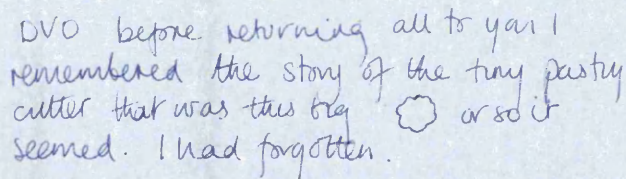 DVO before returning all to you I
remembered the story of the tiny pastry
cutter that was this big or so it
seemed. I had forgotten.